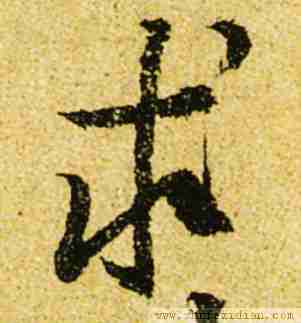 求
www.shufazidian.com